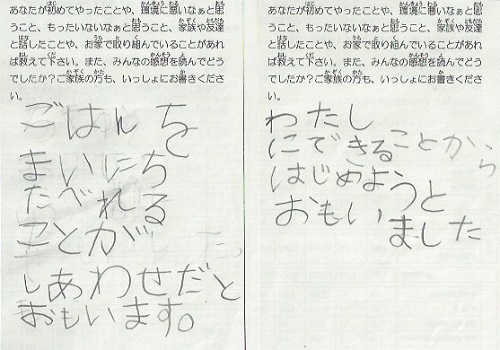 あなたが初めてやったことや、環境に悪いなぁと思
うこと、もったいないなぁと思うこと、家族や友達
と話したことや、お家で取り組んでいることがあれ
ば教えて下さい。また、みんなの感想を読んでどう
でしたか?ご家族の方も、いっしょにお書きくださ
い。
ごはんを
まいにち
たべれる
ことが
しあわせだと
おもいます。
あなたが初めてやったことや、環境に悪いなぁと思
うこと、もったいないなぁと思うこと、家族や友達
と話したことや、お家で取り組んでいることがあれ
ば教えて下さい。また、みんなの感想を読んでどう
でしたか?ご家族の方も、いっしょにお書きくださ
い。
わたし
にできることから
はじめようと
おもい
ました